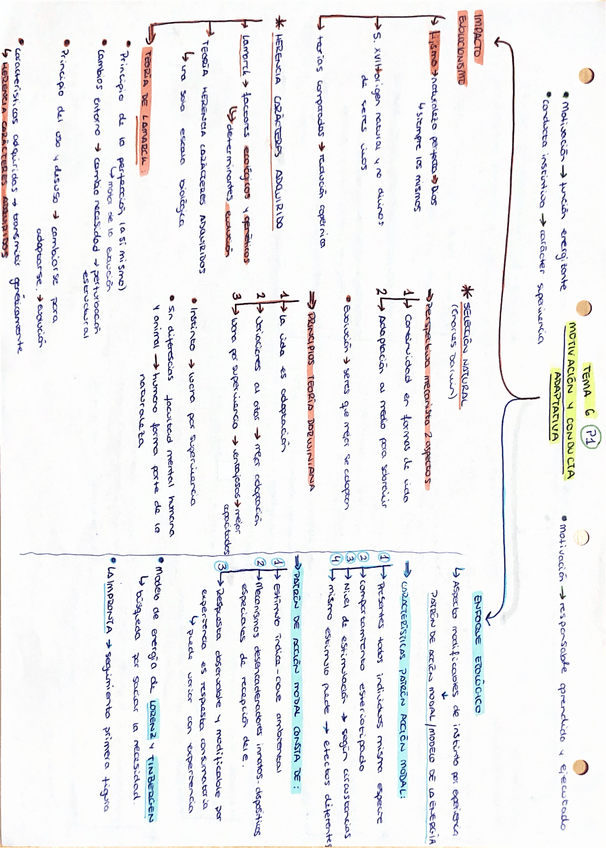 TEMA 6 P1
MOTIVACIÓN Y CONDUCTA
ADAPTATIVA
• Motivación → función energizante
• Conducta instintiva → carácter supervivencia
• Motivación → responsable aprendido y ejecutado
IMPACTO
EVOLUCIONISMO
→ Fijismo → naturaleza perfecta → Dios
↳ siempre los mismos
→ S. XVIII → origen natural y no divinos
de seres vivos
→ teorías comparadas → revolución copérnica
* HERENCIA CARÁCTERES ADQUIRIDO
→ Lamarck → factores ecológicos y genéticos
↳ determinantes evolución
→ TEORÍA HERENCIA CARÁCTERES ADQUIRIDOS
↳ una sola escala biológica
→ TEORÍA DE LAMARCK:
• Principio de la perfección (a sí mismo)
↳ motor de la evolución
• Cambios entorno → cambia necesidad → perturbación
estructural
• Principio del uso y desuso → cambiarse para
adaptarse → evolución
• Características adquiridas → transmiten genéticamente
↳ HERENCIA CARÁCTERES ADQUIRIDOS
* SELECCIÓN NATURAL
(Charles Darwin)
→ Perspectiva mecanista 2 aspectos
1 → Continuidad en formas de vida
2 → Adaptación al medio para sobrevivir
• Evolución → seres que mejor se adaptan
⇒ PRINCIPIOS TEORÍA DARWINIANA
1 → La vida es adaptación
2 → Variaciones al azar → mejor adaptación
3 → Lucha por supervivencia → ventajosos → mejor
capacitados
• Instinto → lucha por supervivencia
• Sin diferencias facultad mental humana
y animal → humano forma parte de la
naturaleza
ENFOQUE ETOLÓGICO
↳ Aspecto modificadores de instinto por experiencia
↓
PATRÓN DE ACCIÓN MODAL / MODELO DE LA ENERGÍA
⇒ CARACTERÍSTICAS PATRÓN ACCIÓN MODAL:
1 → Presentes todos individuos misma especie
2 → Comportamiento estereotipado
3 → Nivel de estimulación → según circunstancias
4 → mismo estímulo puede → efectos diferentes
⇒ PATRÓN DE ACCIÓN MODAL CONSTA DE:
1 → Estímulo índice-clave ambiental
2 → Mecanismos desencadenadores innatos: dispositivos
especiales de recepción del e.
3 → Respuesta observable y modificable por
experiencia es respuesta consumatoria
↳ puede variar con experiencia
• Modelo de energía de LORENZ y TINBERGEN
↳ búsqueda por saciar la necesidad
• LA IMPRONTA → seguimiento primera figura